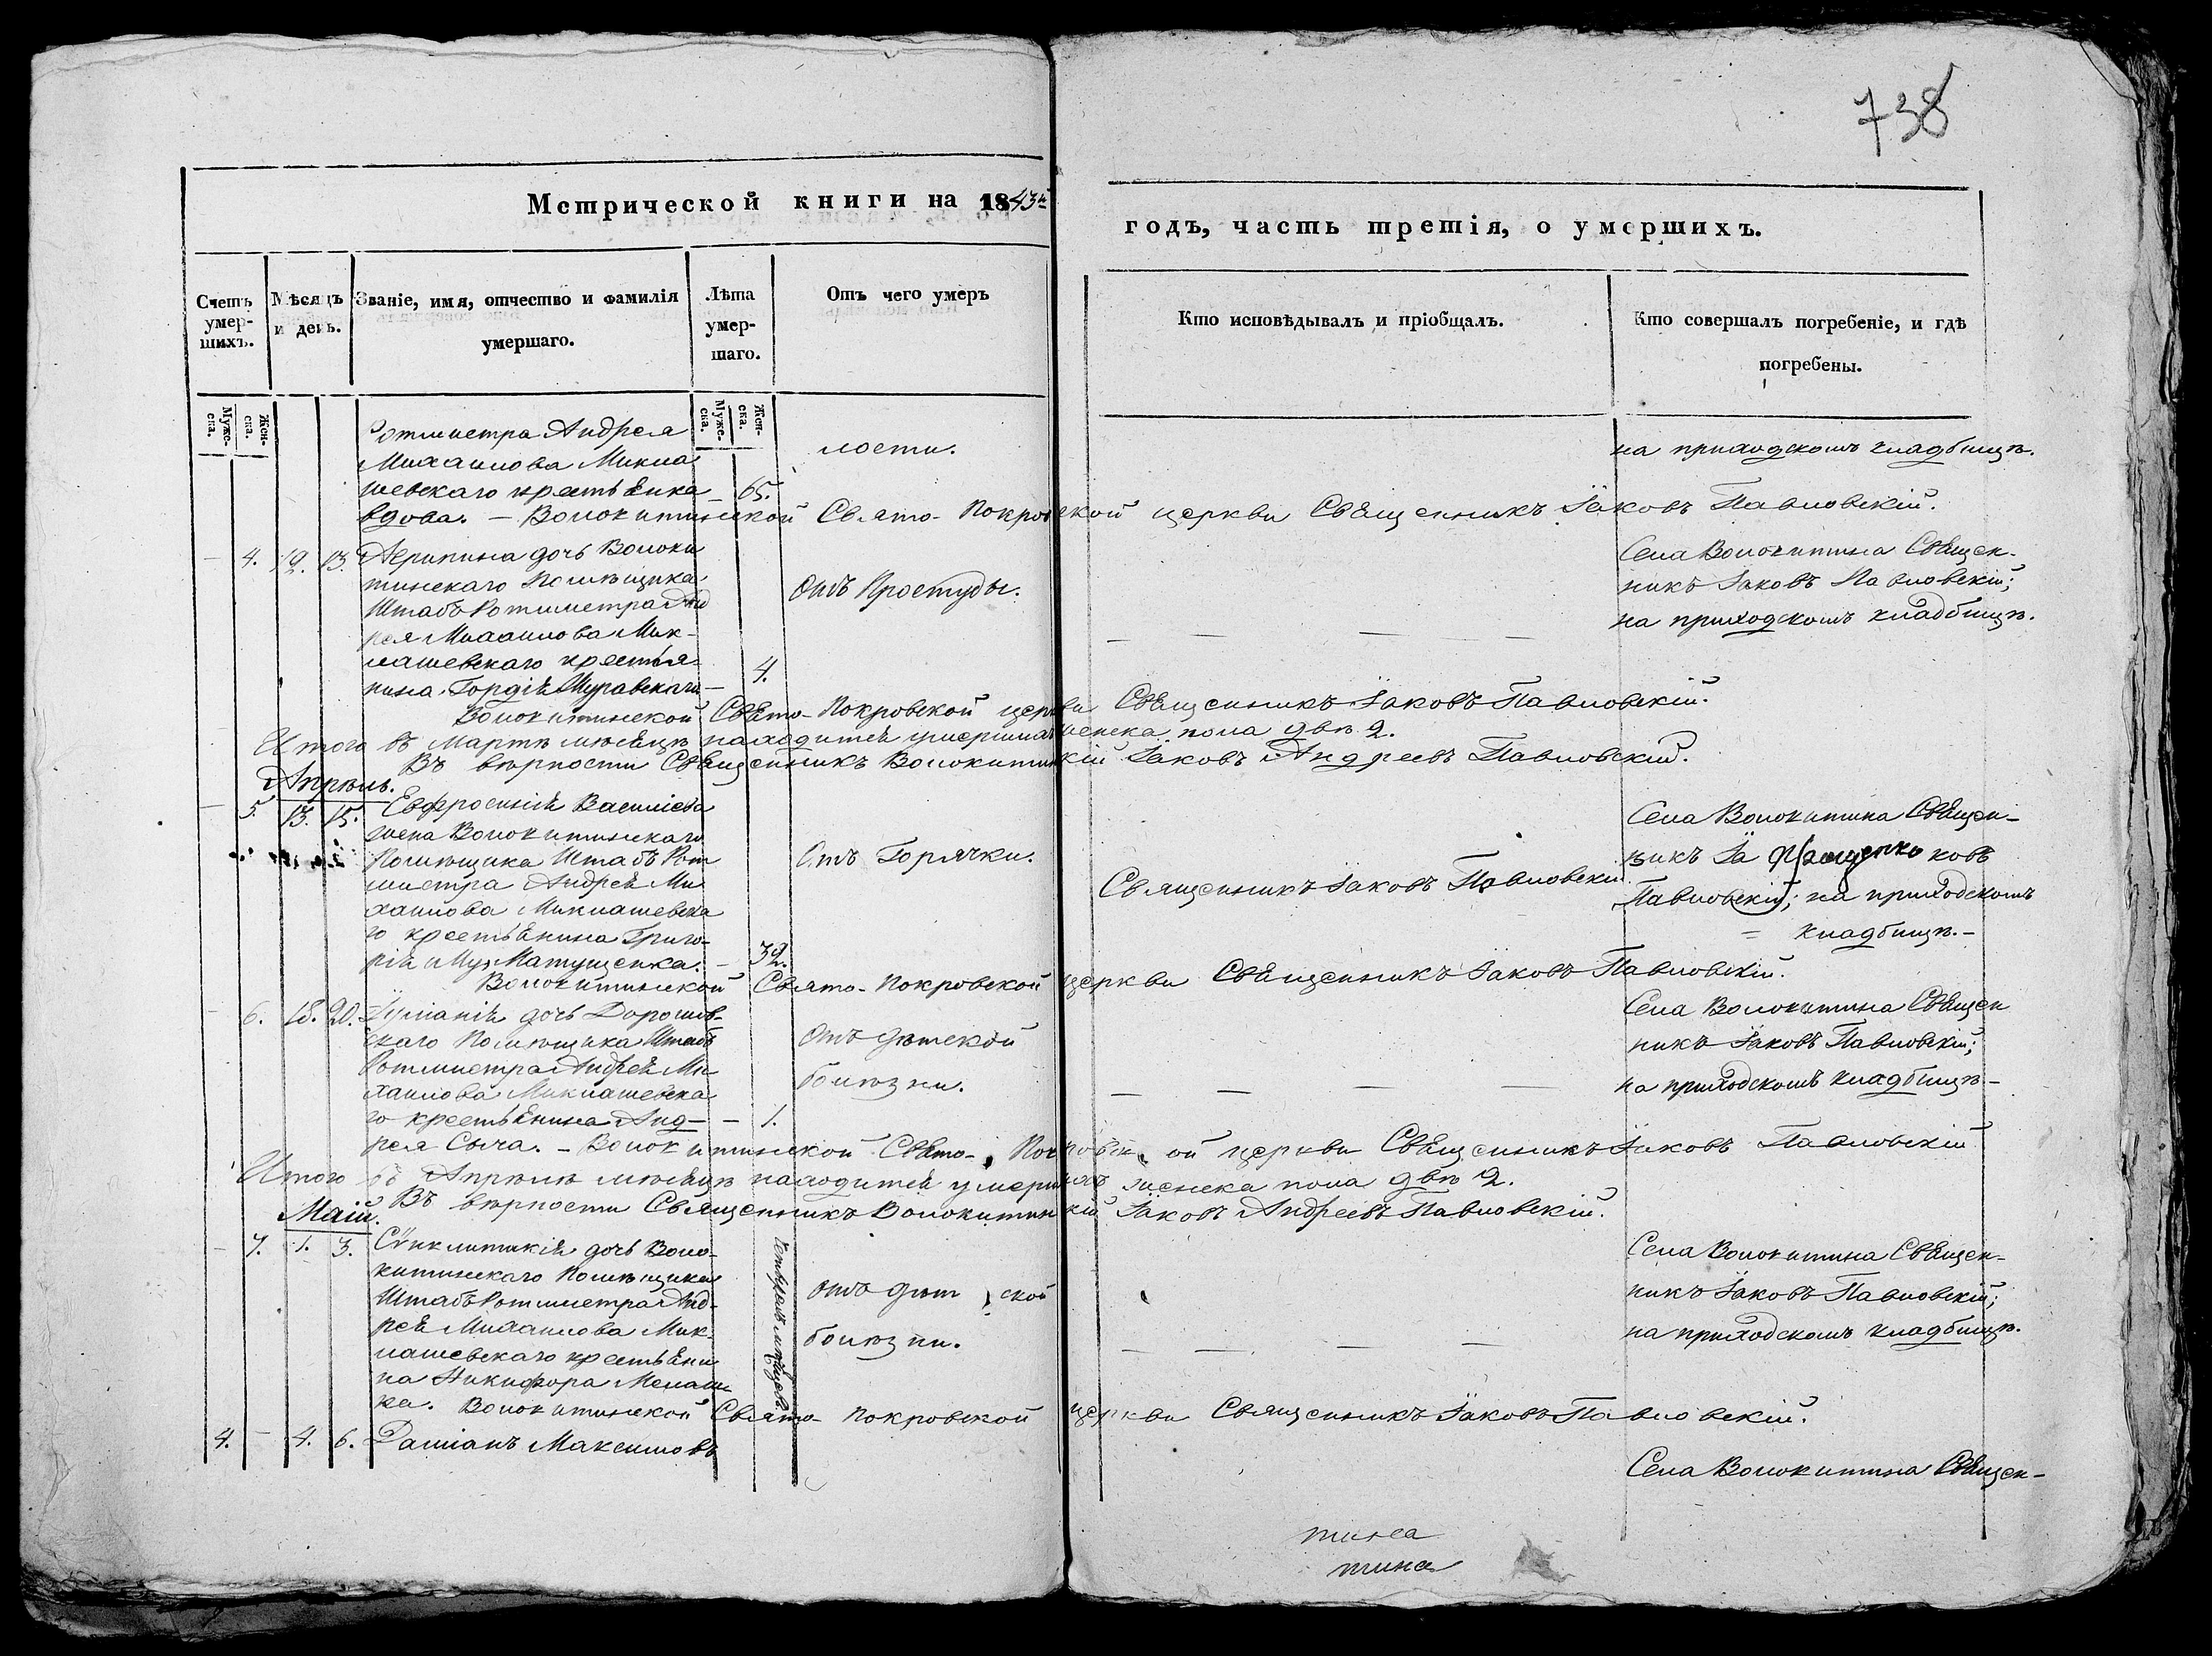 738
Метрической книги на 1843й
годъ, часть третія, о умершихъ.
Счетъ умер-шихъ.
Мѣсяцъ и день.
Званіе, имя, отчество и фамилія умершаго.
Лѣта умер-шаго.
Отъ чего умеръ
Кто исповѣдывалъ и пріобщалъ.
Кто совершалъ погребеніе, и гдѣ погребены.
Муже-ска.
Жен-ска.
Муже-ска.
Жен-ска.
Ротмистра Андрея
Михаилова Микла
шевскаго крестьянка — 65.
лости.
на приходскомъ кладбищѣ.
вдова. — Волокитинской Свято-Покровской церкви Священникъ Іаковъ Павловскій.
— 4. 12. 13. Агрипина дочь Волоки
тинскаго Помѣщика
Штабъ Ротмистра Анд
рея Михаилова Мик-
лашевскаго крестья-
нина Гордія Муравскаго — 4.
Отъ Простуды.
— — — —
Села Волокитина Священ-
никъ Іаковъ Павловскій;
на приходскомъ кладбищѣ.
Волокитинской Свято-Покровской церкви Священникъ Іаковъ Павловскій.
Итого въ мартѣ мѣсяцѣ находится умершихъ женска пола двѣ 2.
Въ вѣрности Священникъ Волокитинскій Іаковъ Андреевъ Павловскій.
Апрѣль.
— 5. 13. 15. Евфросинія Василіева
жена Волокитинскаго
Помѣщика Штабъ Рот
мистра Андрея Ми
хаилова Миклашевска
го крестьянина Григо-
рія Матущенка. — 32.
Отъ Горячки.
Священникъ Іаковъ Павловскі
Села Волокитина Священ-
никъ Іа ковъ
Павловскій; на приходскомъ
= кладбищѣ.—
Волокитинской Свято-Покровской церкви Священникъ Іаковъ Павловскій.
— 6. 18. 20. Іуліанія дочь Дорошов-
скаго Помѣщика Штабъ
Ротмистра Андрея Ми-
хаилова Миклашевска
го крестьянина Анд- — 1.
Отъ дѣтской
болѣзни.
— — — —
Села Волокитина Священ
никъ Іаковъ Павловскій;
на приходскомъ кладбищѣ—
рея Сыча. — Волокитинской Свято-Покровской церкви Священникъ Іаковъ Павловскій
Итого въ Апрѣлѣ мѣсяцѣ находится умершихъ женска пола двѣ 2.
Въ вѣрности Священникъ Волокитинскій Іаковъ Андреевъ Павловскій.
Маій.
— 7. 1. 3. Сѵнклитикія дочь Воло-
китинскаго Помѣщика
Штабъ Ротмистра Анд-
рея Михаилова Мик-
лашевскаго крестьяни
на Никифора
мѣсяцевъ
Отъ дѣт ской
болѣзни.
— — — —
Села Волокитина Священ-
никъ Іаковъ Павловскій;
на приходскомъ кладбищѣ.
ка. Волокитинской Свято-Покровской церкви Священникъ Іаковъ Павловскій.
4. — 4. 6. Даміанъ Максимовъ
Села Волокитина Священ-
тина
тина